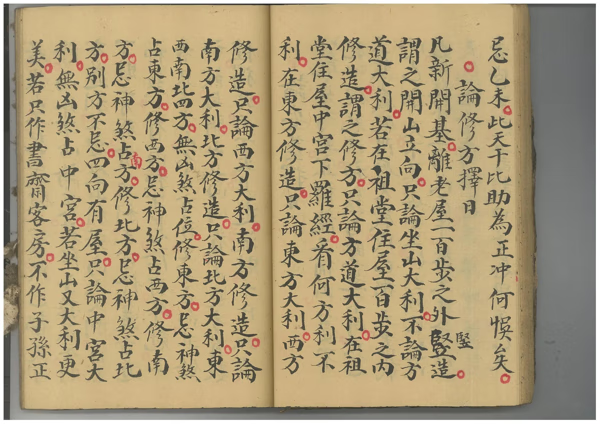 忌乙未此天干比助為正冲何悞矣
論修方擇日
凡新開基離老屋一百步之外豎造
豎
謂之開山立向只論坐山大利不論方
道大利若在祖堂住屋一百步之內
修造謂之修方只論方道大利在祖
堂住屋中宮下羅經看何方利不
利在東方修造只論東方大利西方
修造只論西方大利南方修造只論
南方大利北方修造只論北方大利東
西南北四方無凶煞占位修東方忌神煞
占東方修西方忌神煞占西方修南
方忌神煞占方修北方忌神煞占北
南
方別方不忌四向有屋只論中宮大
利無凶煞占中宮若坐山又大利更
美若只作書齋客房不作子孫正